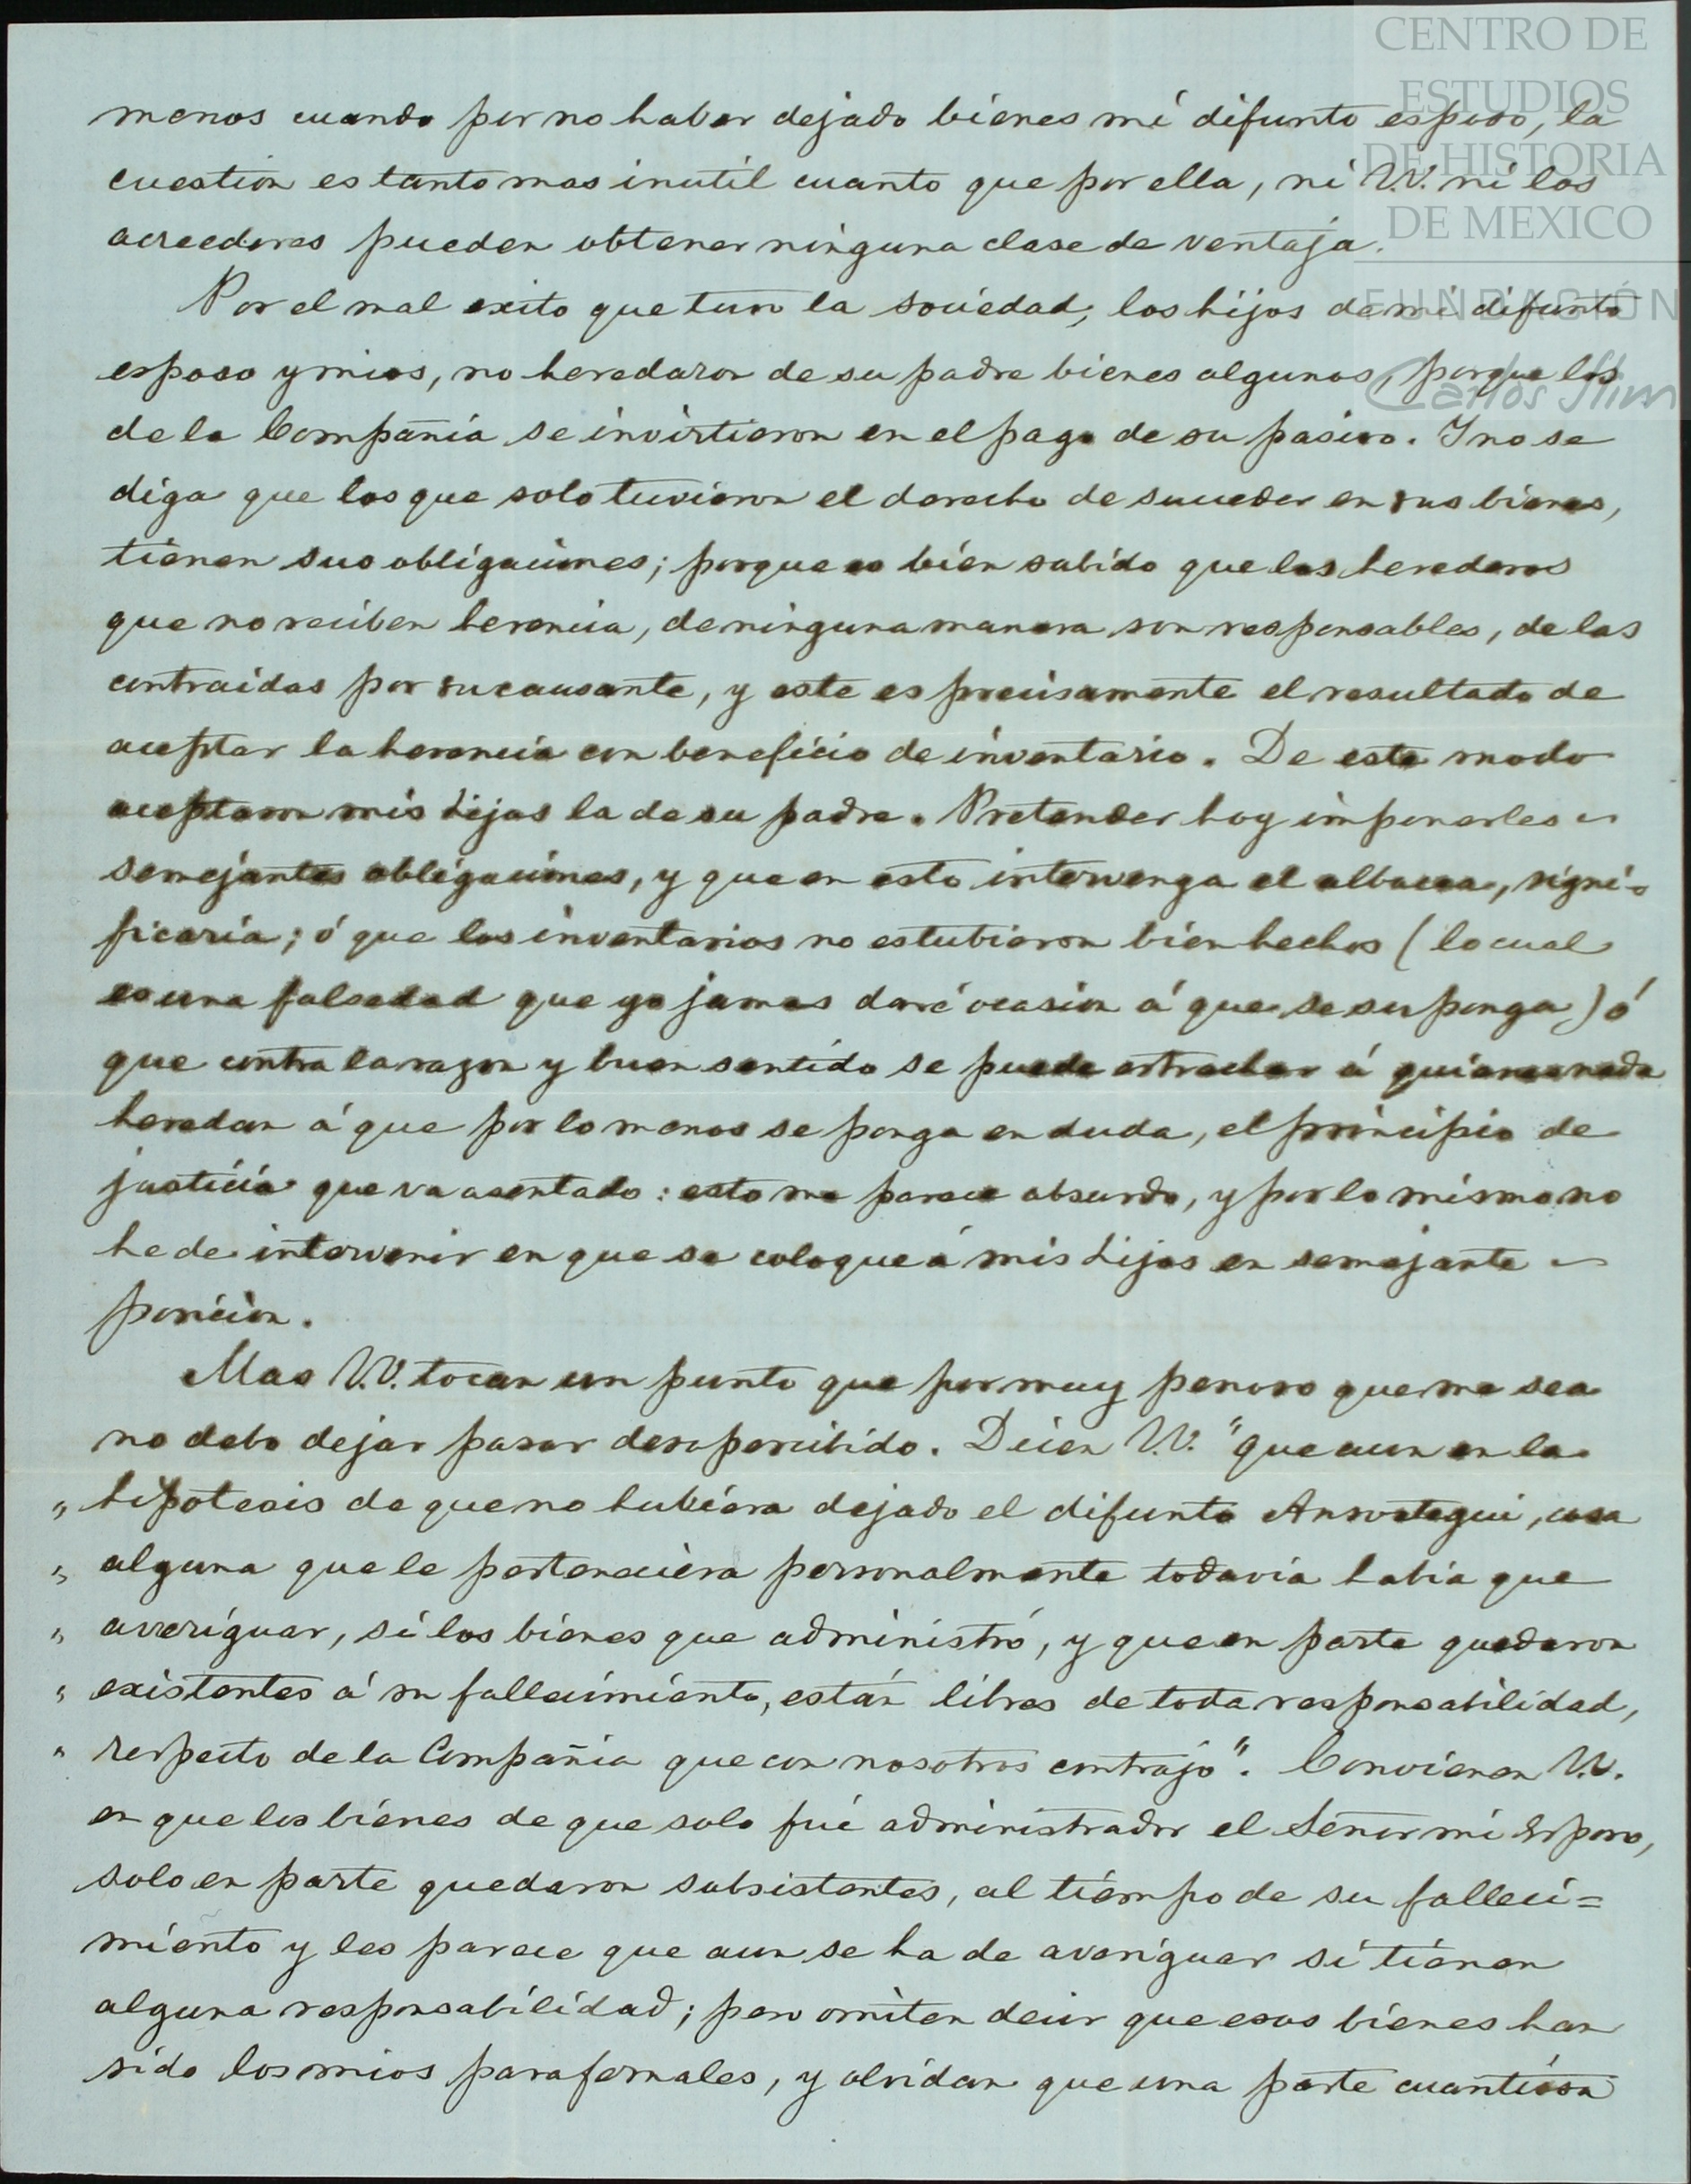 CENTRO DE
ESTUDIOS
DE HISTORIA
DE MEXICO
FUNDACIÓN
Carlos Slim
menos cuando por no haber dejado bienes mi difunto esposo, la
cuestion es tanto mas inutil cuanto que por ella, ni V.V. ni los
acreedores pueden obtener ninguna clase de ventaja.
Por el mal exito que tuvo la sociedad, los hijos de mi difunto
esposo y mios, no heredaron de su padre bienes algunos, porque los
de la Compañia se invirtieron en el pago de su pasivo. Y no se
diga que los que solo tuvieron el derecho de suceder en sus bienes,
tienen sus obligaciones; porque es bien sabido que los herederos
que no reciben herencia, de ninguna manera son responsables, de las
contraidas por su causante, y este es precisamente el resultado de
aceptar la herencia con beneficio de inventario. De este modo
aceptaron mis hijos la de su padre. Pretender hoy imponerles
semejantes obligaciones, y que en esto intervenga el albacea, signi-
ficaría; ó que los inventarios no estubieron bien hechos (lo cual
es una falsedad que yo jamas daré ocasion á que se suponga) ó
que contra la razon y buen sentido se puede estrechar á quienes nada
heredan á que por lo menos se ponga en duda, el principio de
justicia que va asentado: esto me parece absurdo, y por lo mismo no
he de intervenir en que se coloque á mis hijos en semejante
posicion.
Mas V.V. tocan un punto que por muy penoso que me sea
no debo dejar pasar desapercibido. Dicen V.V. "que aun en la
" hipotesis de que no hubiera dejado el difunto Ansoategui, cosa
" alguna que le perteneciera personalmente todavia habia que
" averiguar, si los bienes que administró, y que en parte quedaron
" existentes á su fallecimiento, están libres de toda responsabilidad,
" respecto de la Compañia que con nosotros contrajo". Convienen V.V.
en que los bienes de que solo fué administrador el Señor mi Esposo,
solo en parte quedaron subsistentes, al tiempo de su falleci=
miento y les parece que aun se ha de averiguar si tienen
alguna responsabilidad; pero omiten decir que esos bienes han
sido los mios parafernales, y olvidan que una parte cuantiosa